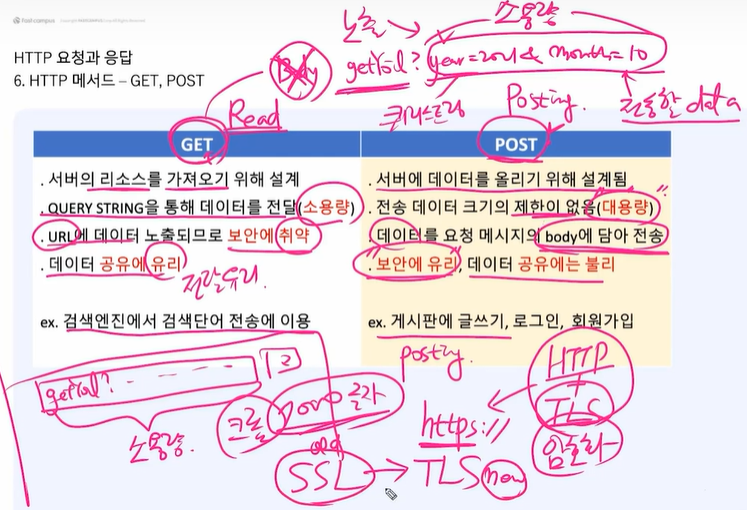 Fast campus
노출
소용량
HTTP 요청과 응답
Body
getYoil? year=2021 & month=10
6. HTTP 메서드 – GET, POST
Read
쿼리스트링
Posting.
전송할 data
GET
POST
. 서버의 리소스를 가져오기 위해 설계
. QUERY STRING을 통해 데이터를 전달(소용량)
. URL에 데이터 노출되므로 보안에 취약
. 데이터 공유에 유리
전달유리.
ex. 검색엔진에서 검색단어 전송에 이용
. 서버에 데이터를 올리기 위해 설계됨
. 전송 데이터 크기의 제한이 없음(대용량)
. 데이터를 요청 메시지의 body에 담아 전송
. 보안에 유리, 데이터 공유에는 불리
ex. 게시판에 글쓰기, 로그인, 회원가입
getYoil?
소용량.
크롬
글자
posting.
HTTP
+
TLS
암호화
https://
old
SSL → TLS new